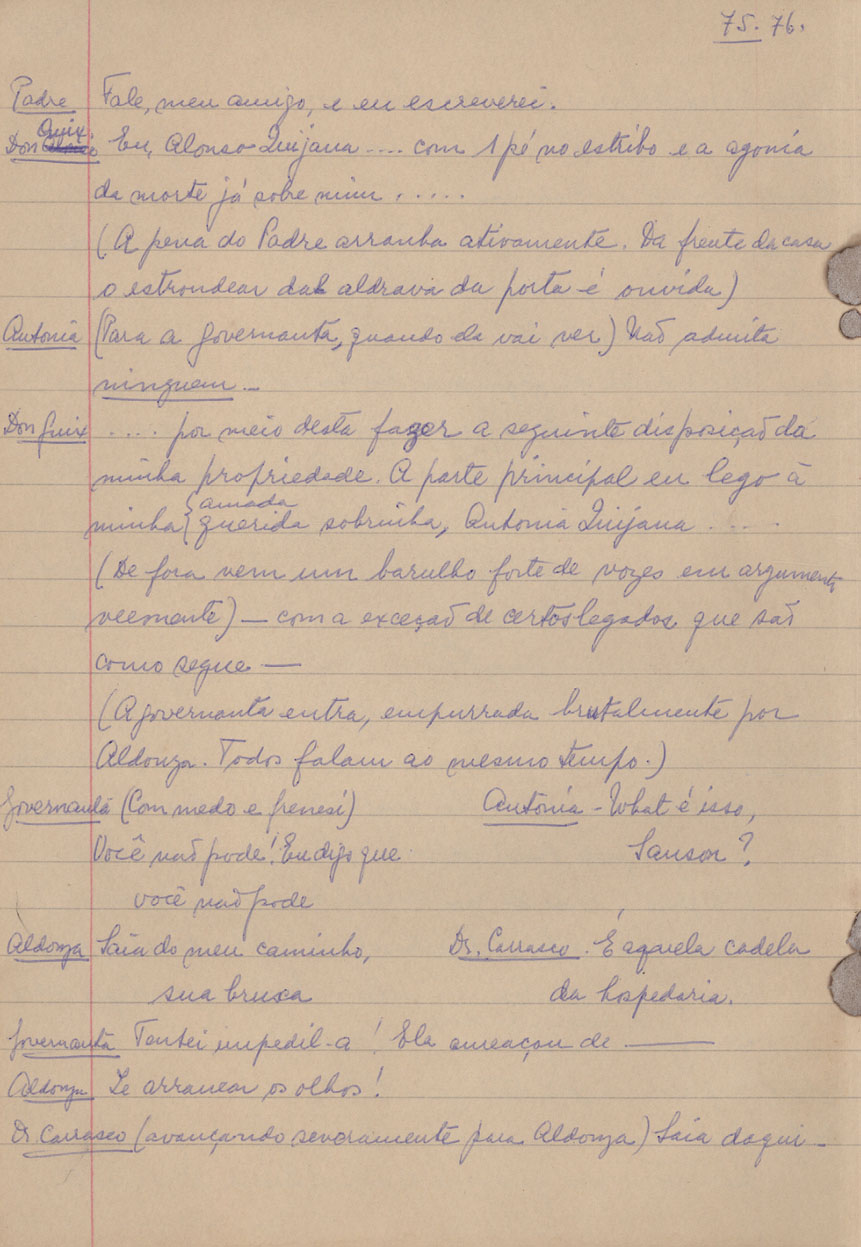 75. 76.
Padre Fale, meu amigo, e eu escreverei.
Quix.
Don Eu, Alonso Quijana .... com 1 pé no estribo e a agonia
da morte já sobre mim .....
(A pena do Padre arranha ativamente. Da frente da casa
o estrondear da aldrava da porta é ouvida)
Antonia (Para a governanta, quando ela vai ver) Não admita
ninguem —
Don Quix .... por meio desta fazer a seguinte disposição da
minha propriedade. A parte principal eu lego à
amada
minha { querida sobrinha, Antonia Quijana ....
(De fora vem um barulho forte de vozes em argumento
veemente) — com a exceção de certos legados que são
como segue —
(A governanta entra, empurrada brutalmente por
Aldonza. Todos falam ao mesmo tempo.)
Governanta (Com medo e frenesi) Antónia - What é isso,
Você não pode! Eu digo que Sanson?
você não pode
Aldonza Saia do meu caminho, Dr. Carrasco. É aquela cadela
sua bruxa da hospedaria.
Governanta Tentei impedil-a! Ela ameaçou de —
Aldonza Te arrancar os olhos!
Dr Carrasco (avançando severamente para Aldonza) Saia daqui —